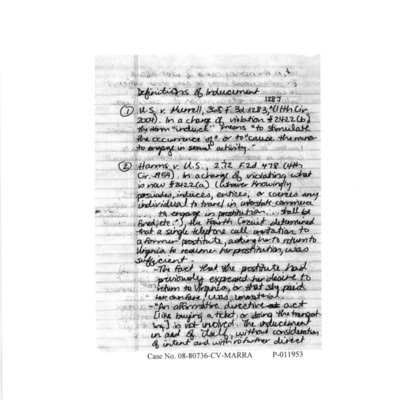 Definitions of Inducement
1287
① U.S. v. Murrell, 368 F.3d 1283, (11th Cir.
2004). In a charge of violation §2422(b)
the term "induce" means "to stimulate
the occurrence of" or to "cause the minor
to engage in sexual activity."
② Harms v. U.S., 272 F.2d 478 (4th
Cir. 1959). In a charge of violating what
is now §2422(a) (whoever knowingly
persuades, induces, entices, or coerces any
individual to travel in interstate commerce
to engage in prostitution ... shall be
fined, etc."), the Fourth Circuit determined
that a single telephone call invitation to
a former prostitute, asking her to return to
Virginia to resume her prostitution, was
sufficient
- The fact that the prostitute had
previously expressed her desire to
return to Virginia, or that she paid
her own fare was immaterial.
- "An affirmative directive act
[like buying a ticket or doing the transport
] is not involved. The inducement
in and of itself, without consideration
of intent and with no further direct
Case No. 08-80736-CV-MARRA P-011953